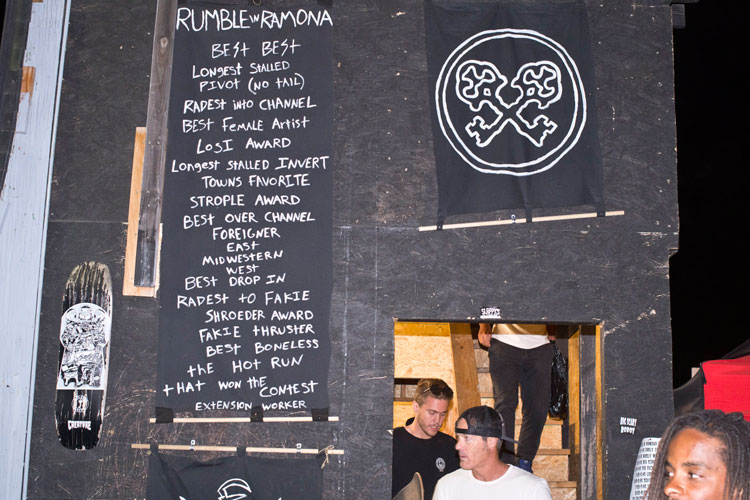 RUMBLE in RAMONA
BEST BEST
LONGEST STALLED
PIVOT (NO TAIL)
RADEST INTO CHANNEL
BEST FEMALE ARTIST
LOSI AWARD
LONGEST STALLED INVERT
TOWNS FAVORITE
STROPLE AWARD
BEST OVER CHANNEL
FOREIGNER
EAST
MIDWESTERN
WEST
BEST DROP IN
RADEST TO FAKIE
SHROEDER AWARD
FAKIE THRUSTER
BEST BONELESS
the HOT RUN
tHAT WON the CONTEST
EXTENSION WORKER
CREATURE
SLAPPEY
BIG SCARY
ROBOT